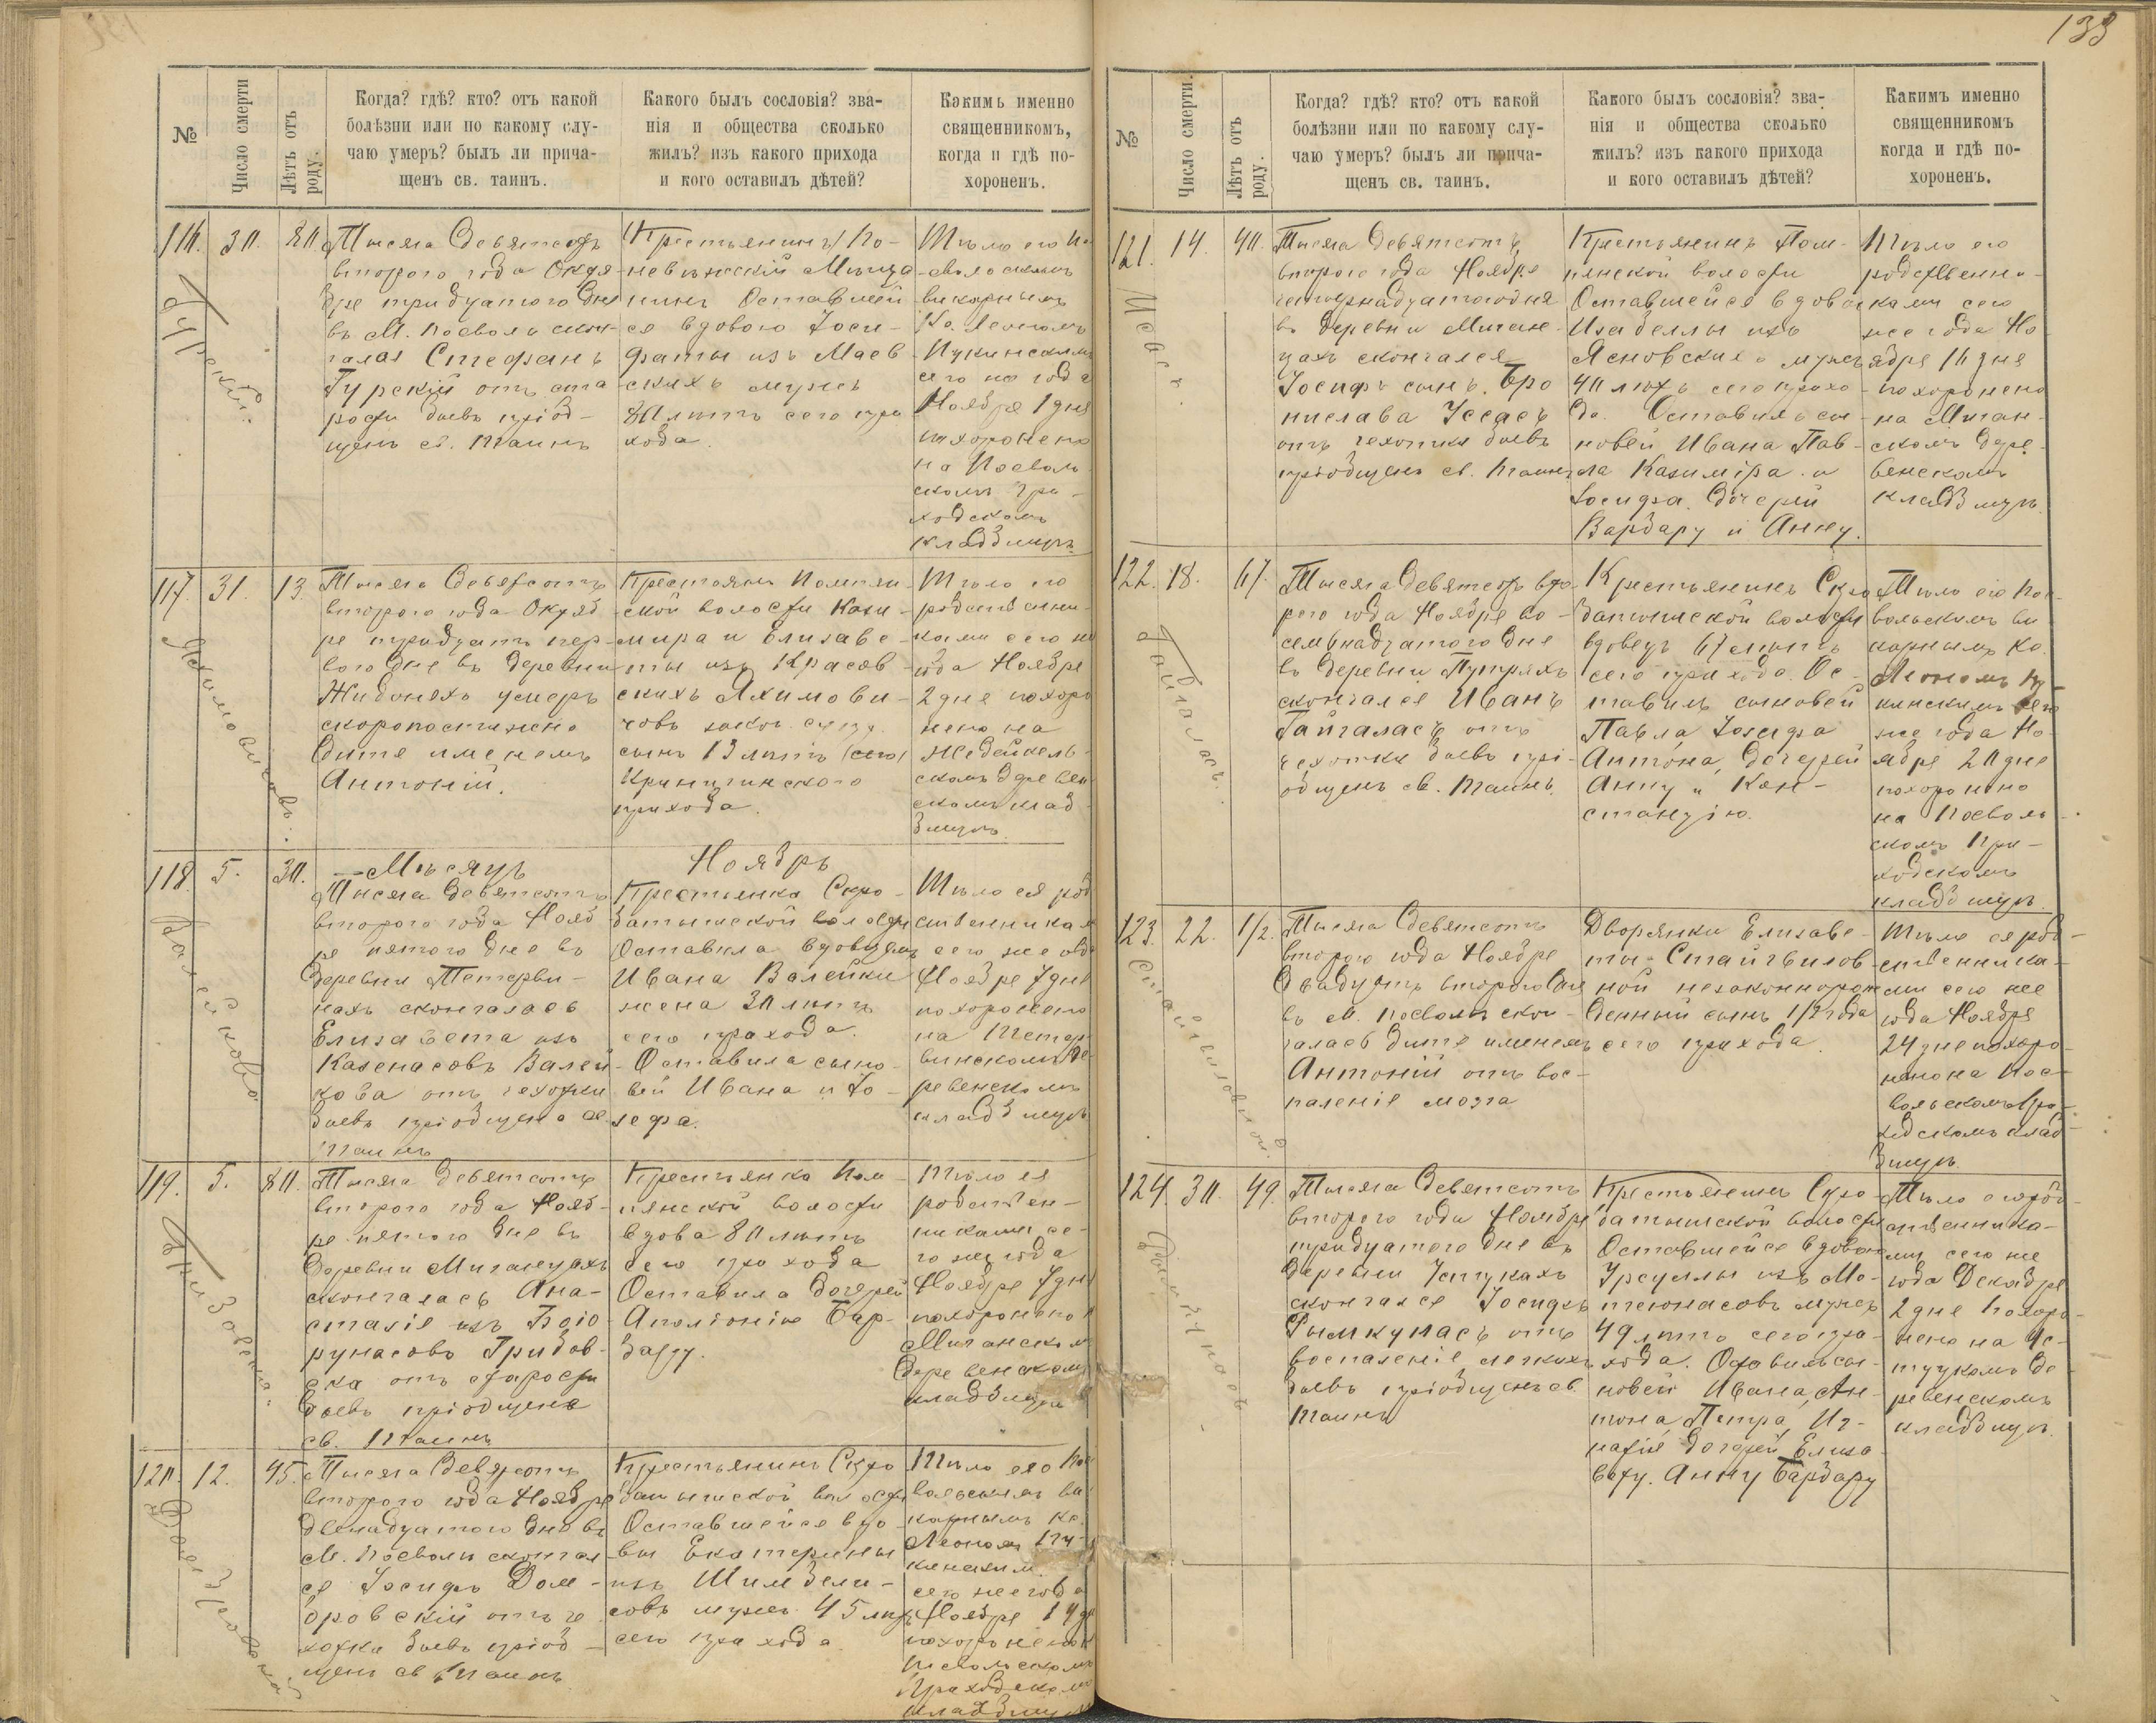 133
№
Число смерти
Лѣтъ отъ
роду.
Когда? гдѣ? кто? отъ какой
болѣзни или по какому слу-
чаю умеръ? былъ ли прича-
щенъ св. таинъ.
Какого былъ сословія? зва-
нія и общества сколько
жилъ? изъ какого прихода
и кого оставилъ дѣтей?
Какимъ именно
священникомъ,
когда и гдѣ по-
хороненъ.
116. 30. 80.
Гурскій.
Тысяча девятсотъ
второго года Октя-
бре тридцатого дня
въ М. Посволи скон-
чался Стефанъ
Гурскій отъ ста
рости бывъ пріоб-
щенъ св. Таинъ
Крестьянинъ По-
невѣжскій Мѣща
нинъ Оставшей
ся вдовою Іози-
фаты изъ Маев
скихъ мужъ
80 лѣтъ сего при
хода.
Тѣло его По
свольскимъ
викарнымъ
Кс. Леономъ
Пукинскимъ
сего же года
Ноября 1 дня
похоронено
на Посволь
скомъ при-
ходскомъ
кладбищѣ.
117. 31. 13.
Якимовичовъ.
Тысяча девятсотъ
второго года Октяб
ре тридцать пер-
вого дня въ деревни
Жидонехъ умеръ
скоропостижно
дитя именемъ
Антоній.
Крестьянъ Помпян
ской волости Кази-
мира и Елизаве-
ты изъ Красов
скихъ Яхимови-
човъ закон. супр.
сынъ 13 лѣтъ (сего)
Криничинского
прихода.
Тѣло его
родственни-
ками сего же
года Ноября
2 дня похоро
нено на
Жедейкель-
скомъ деревен
скомъ клад
бищѣ.
— Мѣсяцъ Ноябрь
118. 5. 30.
Валейково.
Тысяча девятсотъ
второго года Нояб
ре пятого дня въ
деревни Тетерви-
нахъ скончалась
Елизавета изъ
Казенасовъ Валей-
кова отъ чехотки
бывъ пріобщена св.
Таинъ
Крестьянка Скро-
батышской волости
Оставила вдовцемъ
Ивана Валейки
жена 30 лѣтъ
сего прихода.
Оставила сыно-
вей Ивана и Іо-
зефа.
Тѣло ея род
ственниками
сего же года
Ноября 7 дня
похоронено
на Тетер
винскомъ де-
ревенскомъ
кладбищѣ
119. 5. 80.
Грибовска.
Тысяча девятсотъ
второго года Нояб-
ре пятого дня въ
деревни Мичанцахъ
скончалась Ана-
стазія изъ Боіо-
рунасовъ Грибов-
ска отъ старости
бывъ пріобщена
св. Таинъ
Крестьянка Пом-
пянской волости
вдова 80 лѣтъ
сего прихода
Оставила дочерей
Аполонію Бар-
бару.
Тѣло ея
родствен-
никами се-
го же года
Ноября 7 дня
похоронено н
Мичанском
деревенскомъ
кладбищѣ
120. 12. 45.
Домбровскій
Тысяча девятсотъ
второго года Ноября
двенадцатого дня въ
М. Посволи скончал
ся Іосифъ Дом-
бровскій отъ че
хотки бывъ пріоб-
щенъ св Таинъ
Крестьянинъ Скро
батышской волости
Оставшейся вдо-
вы Екатерины
изъ Шимбели-
совъ мужъ 45 лѣтъ
сего прихода
Тѣло его Пос
вольскимъ ви
карнымъ Кс.
Леономъ Пу-
кинским
сего же года
Ноября 14 дн
похоронено н
Посвольскомъ
Приходском
кладбищѣ
№
Число смерти.
Лѣтъ отъ
роду.
Когда? гдѣ? кто? отъ какой
болѣзни или по какому слу-
чаю умеръ? былъ ли прича-
щенъ св. таинъ.
Какого былъ сословія? зва-
нія и общества сколько
жилъ? изъ какого прихода
и кого оставилъ дѣтей?
Какимъ именно
священникомъ
когда и гдѣ по-
хороненъ.
121. 14. 40.
Тысяча девятсотъ
второго года Ноября
четырнадцатого дня
въ деревни Мичан-
цахъ скончался
Іосифъ сынъ Бро
нислава Іесасъ
отъ чехотки бывъ
пріобщенъ св. Таинъ
Крестьянинъ Пом-
пянской волости
Оставшейся вдовы
Изабеллы изъ
Ясновскихъ мужъ
40 лѣтъ сего прихо
да. Оставилъ сы-
новей Ивана Пав-
ла Казиміра и
Іосифа. Дочерей
Барбару и Анну.
Тѣло его
родственни-
ками сего
же года Но
ября 16 дня
похоронено
на Мичан-
скомъ дере-
венскомъ
кладбищѣ.
122. 18. 67.
Гайгаласъ.
Тысяча девятсотъ вто-
рого года Ноября во-
семьнадцатого дня
въ деревни Путряхъ
скончался Иванъ
Гайгаласъ отъ
чехотки бывъ прі-
общенъ св. Таинъ.
Крестьянинъ Скро
батышской волости
вдовецъ 67 лѣтъ
сего прихода. Ос-
тавилъ сыновей
Павла, Іозефа
Антона, дочерей
Анну и Кон-
станцію.
Тѣло его Пос-
вольскимъ ви
карнымъ Кс.
Леономъ Пу-
кинскимъ сего
же года Но-
ября 20 дня
похоронено
на Посволь
скомъ При-
ходскомъ
кладбищѣ.
123. 22. 1/2.
Стайгвиловной
Тысяча девятсотъ
второго года Ноября
двадцать второго дня
въ М. Посволи скон-
чалась дитя именемъ
Антоній отъ вос-
паленіе мозга
Дворянки Елизаве-
ты Стайгвилов
ной незаконнорож
денный сынъ 1/2 года
сего прихода.
Тѣло ея род-
ственника-
ми сего же
года Ноября
24 дня похоро-
нено на Пос-
вольскомъ При-
ходскомъ клад
бищѣ.
124. 30. 49.
Тысяча девятсотъ
второго года Ноября
тридцатого дня въ
деревни Устукахъ
скончался Іосифъ
Рымкунасъ отъ
воспаленіе легкихъ
бывъ пріобщенъ св
Таинъ
Крестьянинъ Скро-
батышской волости
Оставшейся вдовы
Урсулы изъ Ма-
теюнасовъ мужъ
49 лѣтъ сего при-
хода. Оставилъ сы-
новей Ивана, Ан-
тона, Петра, Иг-
натія дочерей Елиза-
вету. Анну Барбару
Тѣло его род-
ственника-
ми сего же
года Декабря
2 дня Похоро-
нено на Ус-
тукскомъ де
ревенскомъ
кладбищѣ.